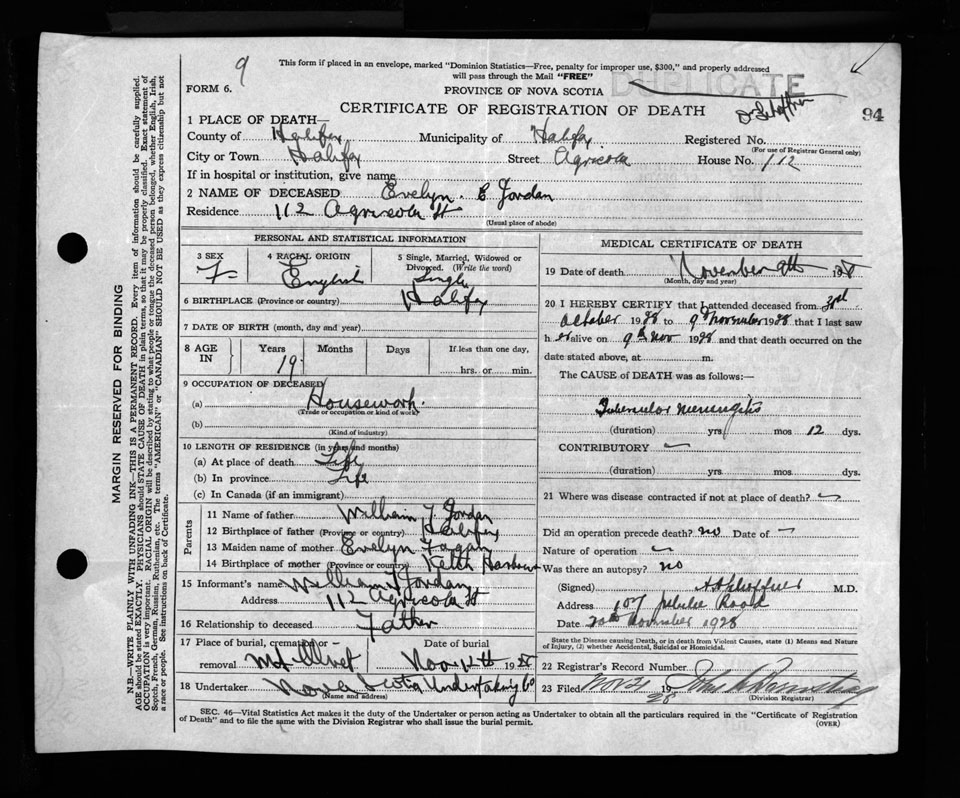 9
This form if placed in an envelope, marked "Dominion Statistics—Free, penalty for improper use, $300," and properly addressed
will pass through the Mail "FREE"
FORM 6.
PROVINCE OF NOVA SCOTIA
DUPLICATE
CERTIFICATE OF REGISTRATION OF DEATH
94
1 PLACE OF DEATH—
County of Halifax Municipality of Halifax Registered No.
(For use of Registrar General only)
City or Town Halifax Street Agricola House No. 112
If in hospital or institution, give name
2 NAME OF DECEASED Evelyn. C Jordan
Residence 112 Agricola St
(Usual place of abode)
PERSONAL AND STATISTICAL INFORMATION
3 SEX F
4 RACIAL ORIGIN English
5 Single, Married, Widowed or Divorced. (Write the word) Single
6 BIRTHPLACE (Province or country) Halifax
7 DATE OF BIRTH (month, day and year)
8 AGE IN Years 19 Months Days If less than one day, hrs. or min.
9 OCCUPATION OF DECEASED
(a) Housework.
(Trade or occupation or kind of work)
(b)
(Kind of industry)
10 LENGTH OF RESIDENCE (in years and months)
(a) At place of death Life
(b) In province Life
(c) In Canada (if an immigrant)
Parents
11 Name of father William J. Jordan
12 Birthplace of father (Province or country) Halifax
13 Maiden name of mother Evelyn Fagan
14 Birthplace of mother (Province or country) Ketch Harbour
15 Informant's name William Jordan
Address 112 Agricola St
16 Relationship to deceased Father
17 Place of burial, cremation or removal Mt Olivet
Date of burial Nov 12th 19
18 Undertaker Nova Scotia Undertaking Co
(Name and address)
MEDICAL CERTIFICATE OF DEATH
19 Date of death November 9th 1928
(Month, day and year)
20 I HEREBY CERTIFY that I attended deceased from 3rd
October 1928 to 9th November 1928 that I last saw
her alive on 9th Nov 1928 and that death occurred on the
date stated above, at m.
The CAUSE of DEATH was as follows:—
Tubercular meningitis
(duration) yrs. mos 12 dys.
CONTRIBUTORY
(duration) yrs. mos. dys.
21 Where was disease contracted if not at place of death?
Did an operation precede death? no Date of
Nature of operation
Was there an autopsy? no
(Signed) M.D.
Address 107 Jubilee Road
Date 20th November 1928
State the Disease causing Death, or in death from Violent Causes, state (1) Means and Nature of Injury, (2) whether Accidental, Suicidal or Homicidal.
22 Registrar's Record Number
23 Filed Nov 21 1928
(Division Registrar)
SEC. 46—Vital Statistics Act makes it the duty of the Undertaker or person acting as Undertaker to obtain all the particulars required in the "Certificate of Registration
of Death" and to file the same with the Division Registrar who shall issue the burial permit.
(OVER)
MARGIN RESERVED FOR BINDING
N.B.—WRITE PLAINLY WITH UNFADING INK—THIS IS A PERMANENT RECORD. Every item of information should be carefully supplied.
AGE should be stated EXACTLY. PHYSICIANS should STATE CAUSE OF DEATH in plain terms, so that it may be properly classified. Exact statement of
OCCUPATION is very important. RACIAL ORIGIN will be described by stating to what people or tongue the deceased person belonged, whether English, Irish,
Scotch, French, German, Russian, Ruthenian, etc. The terms "AMERICAN" or "CANADIAN" SHOULD NOT BE USED as they express citizenship but not
a race or people. See instructions on back of Certificate.